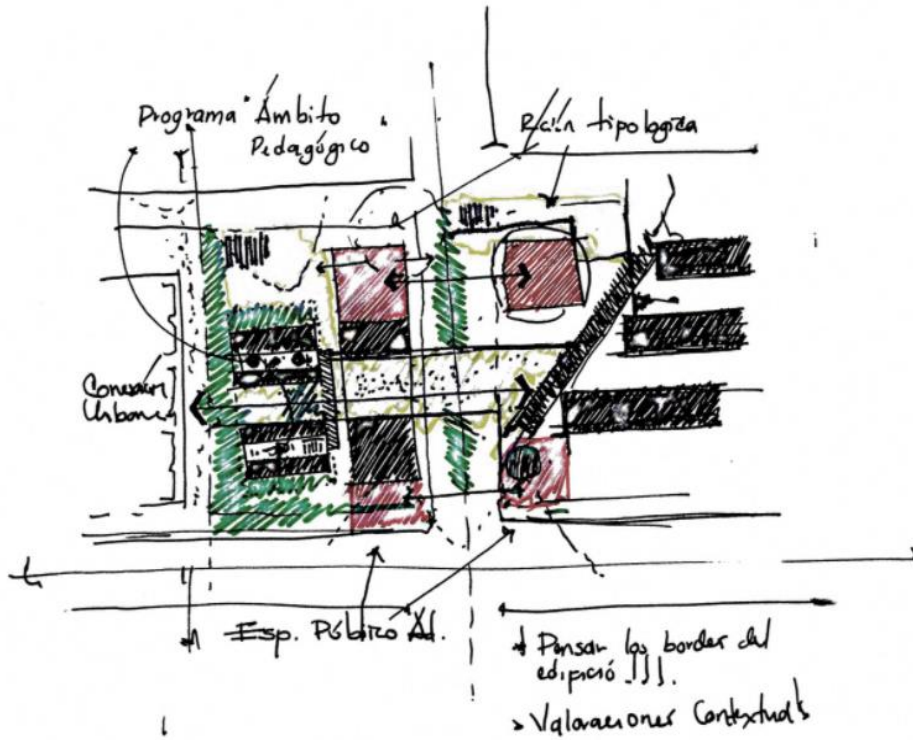 Programa Ámbito
Pedagógico
tipologica
Conexión
Urbana
Esp. Público Ad.
Pensar los border del
edifició !!!.
> Valoraciones Contextual's